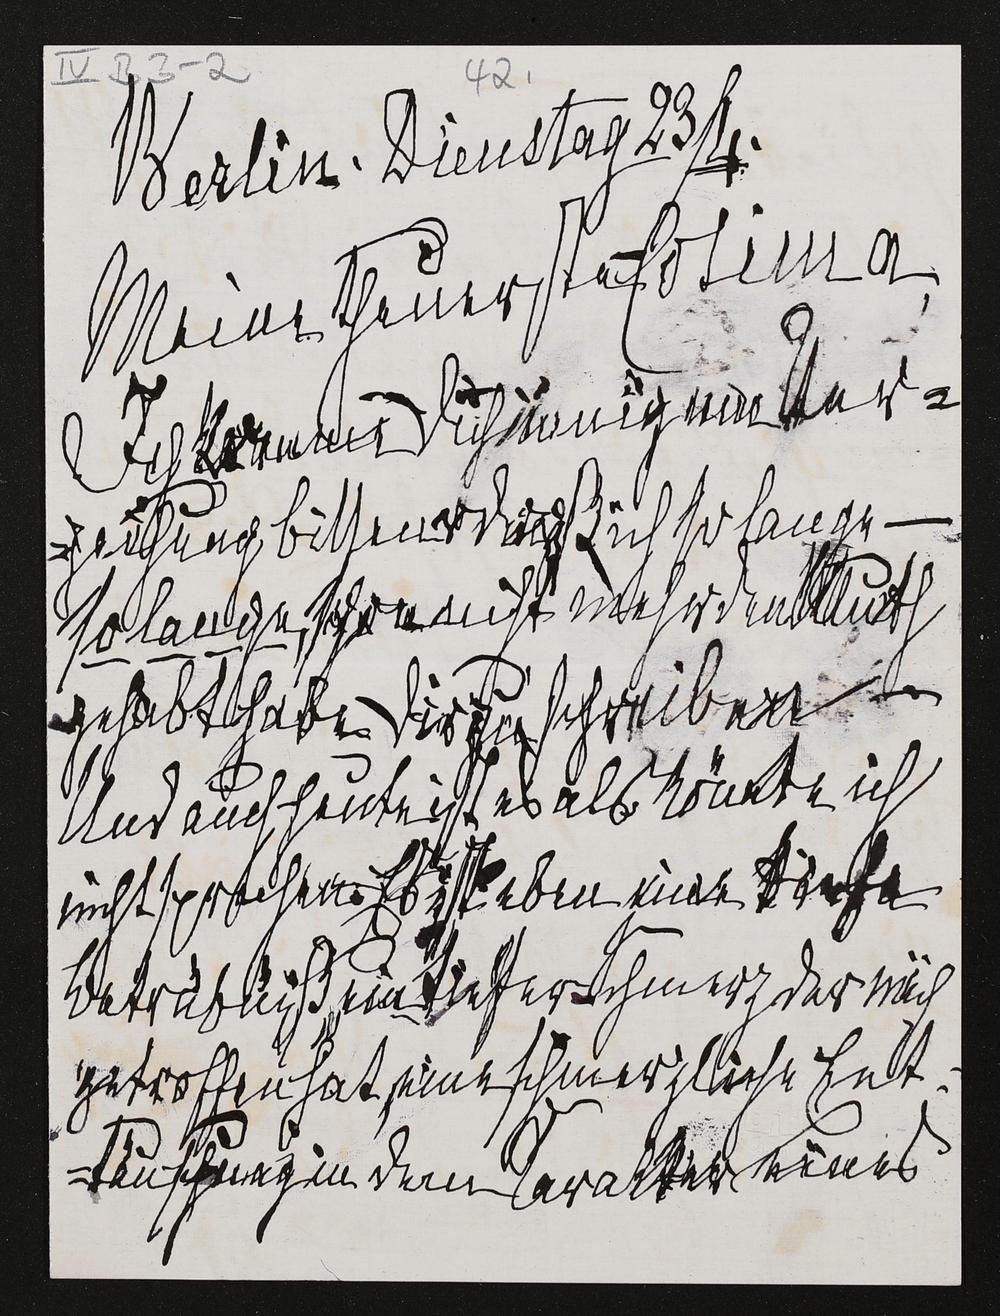 IV B 3-2
42.
Berlin. Dienstag 23/4.
Meine theuerste Cosima,
Ich kom̅e Dich innig um Ver=
=zeihung bitten daß ich so lange —
so lange, schon nicht mehr den Muth
gehabt habe Dir zu schreiben —
Und auch heute ist es als könnte ich
nicht sprechen. Es ist eben eine tiefe
Betrübniß ein tiefster Schmerz der mich
getroffen hat, eine schmerzliche Ent=
=täuschung in dem Carakter eines